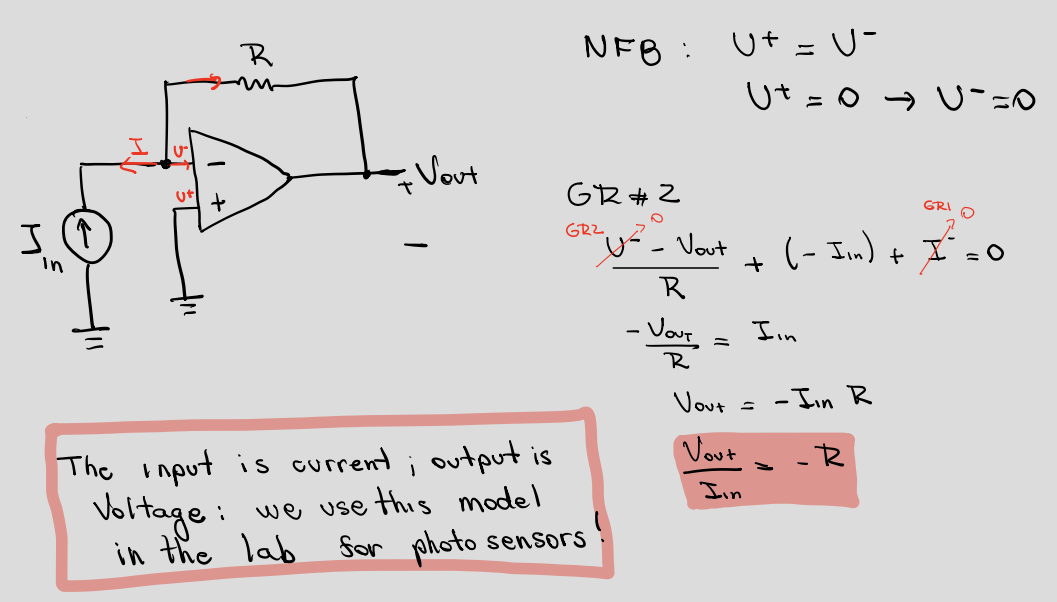 R
I
U-
U+
-
+
+ Vout
-
Iin
NFB : U+ = U-
U+ = 0 → U- = 0
GR # 2
GR2 0 GR1 0
(U- - Vout)/R + (- Iin) + I- = 0
-Vout/R = Iin
Vout = -Iin R
Vout/Iin = - R
The input is current ; output is
Voltage : we use this model
in the lab for photo sensors !